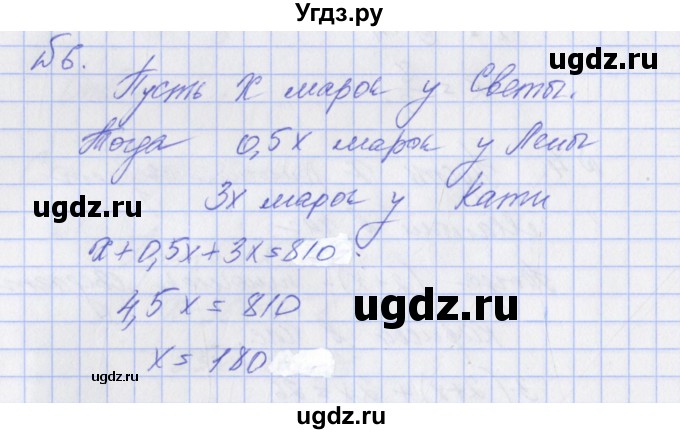 Угдз.ру
№6.
ugdz.ru
Пусть х марок у Светы.
Тогда 0,5х марок у Лены
3х марок у Кати
ugdz.ru
х+0,5х+3х=810.
4,5х=810
ugdz.ru
х=180
ugdz.ru
ugdz.ru
ugdz.ru